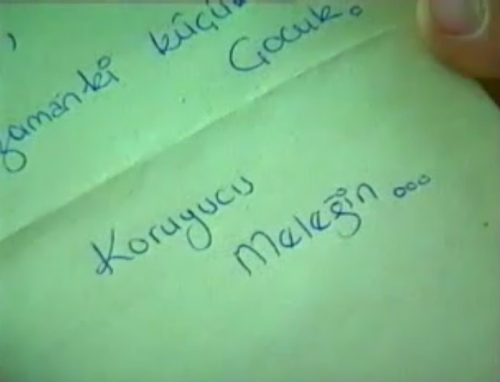 zamanki küçük
Çocuk.
Koruyucu
Meleğin...